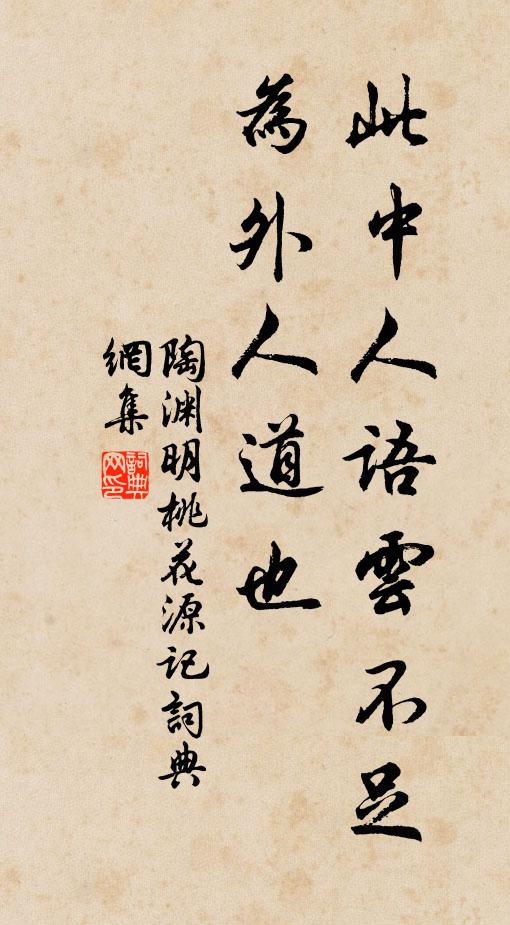 此中人語雲不足
為外人道也
陶渊明桃花源记詞典
網集
詞典
网印